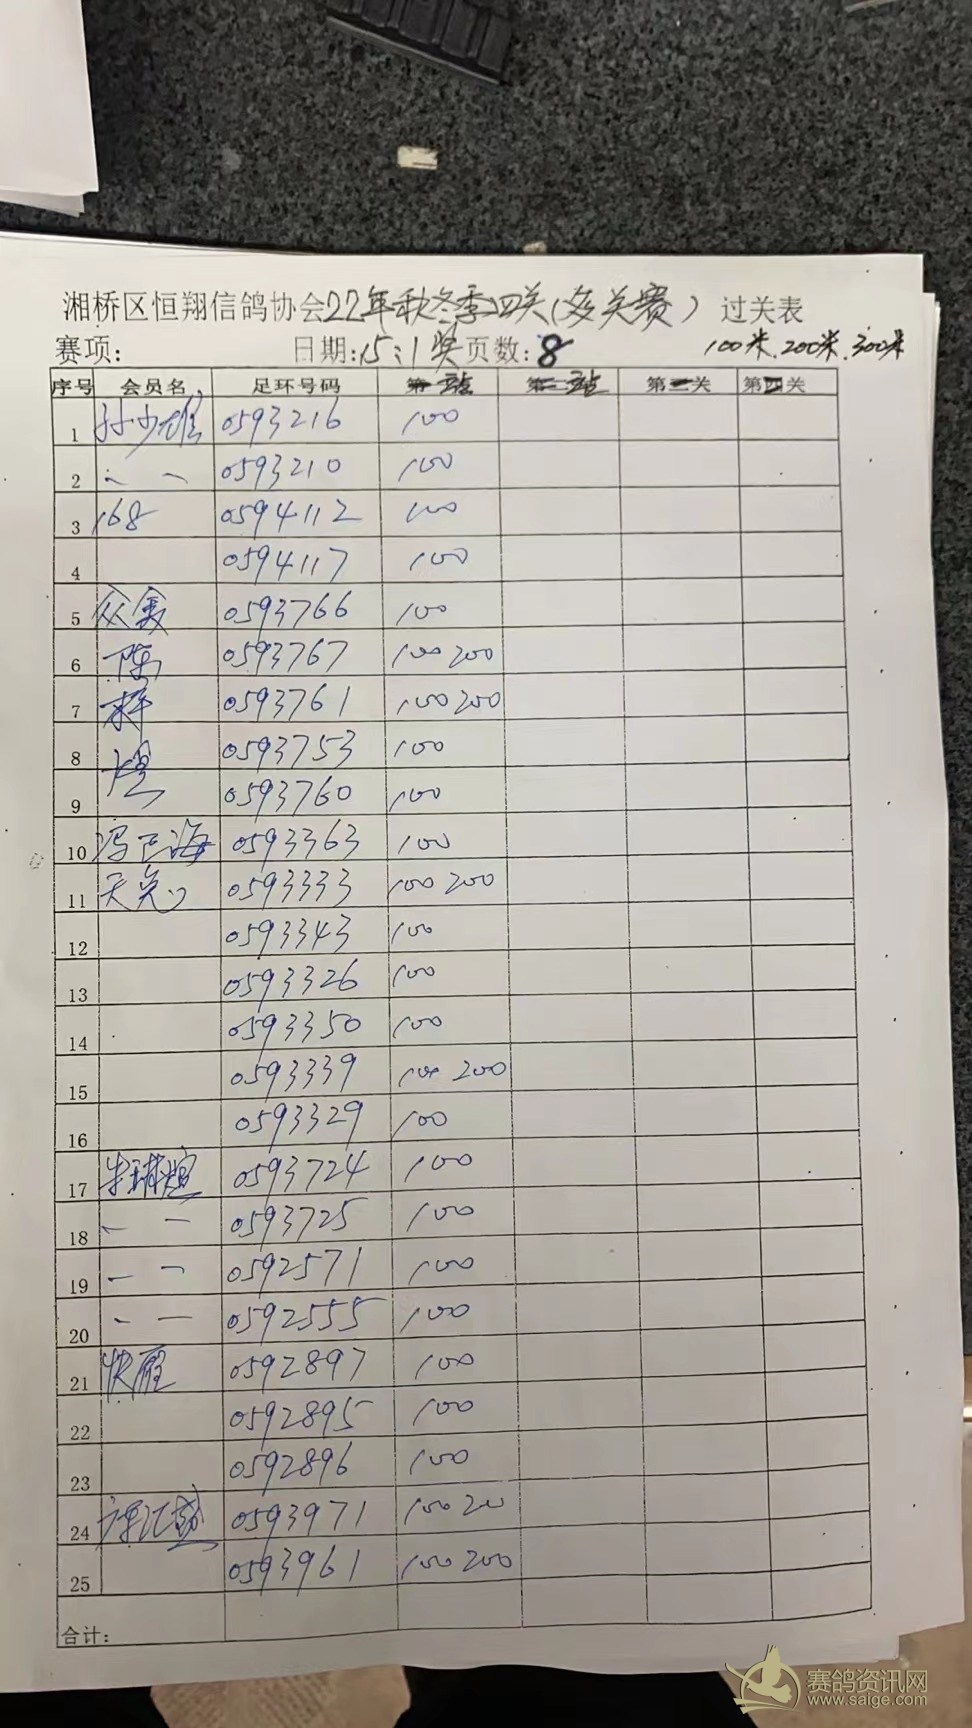 湘桥区恒翔信鸽协会22年秋冬季四关(多关赛) 过关表
赛项: 日期:15:1奖 页数:8 100米.200米.300米
序号 会员名 足环号码 第一站 第二站 第三关 第四关
1 孙少雄 0593216 100
2 0593210 100
3 168 0594112 100
4 0594117 100
5 众鑫 0593766 100
6 陈 0593767 100 200
7 梓 0593761 100 200
8 0593753 100
9 0593760 100
10 冯巳海 0593363 100
11 天 0593333 100 200
12 0593343 100
13 0593326 100
14 0593350 100
15 0593339 100 200
16 0593329 100
17 0593724 100
18 0593725 100
19 0592571 100
20 0592555 100
21 快雁 0592897 100
22 0592895 100
23 0592896 100
24 0593971 100 200
25 0593961 100 200
合计:
赛鸽资讯网
www.saige.com